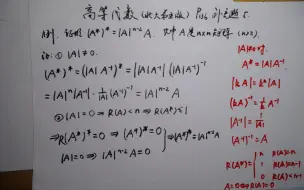 高等代数(北大第五版) P₂₀₆ 补充题 5.
例. 证明 (A*)* = |A|ⁿ⁻²A. 其中 A 是 n×n 矩阵 (n>2).
证: ① |A|≠0.
(A*)* = (|A|A⁻¹)* = ||A|A⁻¹| (|A|A⁻¹)⁻¹
= |A|ⁿ|A⁻¹| · 1/|A| (A⁻¹)⁻¹ = |A|ⁿ⁻²A
② |A|=0 ⇒ R(A)<n ⇒ R(A*)≤1
⇒ R(A*)*=0 ⇒ (A*)*=0
|A|=0 ⇒ |A|ⁿ⁻²A=0
} ⇒ (A*)*=|A|ⁿ⁻²A
|A|≠0 时
A*=|A|A⁻¹
|kA|=kⁿ|A|
(kA)⁻¹=1/k A⁻¹
|A⁻¹|=1/|A|
(A⁻¹)⁻¹=A
R(A*)={ n R(A)=n
1 R(A)=n-1
0 R(A)<n-1
A=0⇔R(A)=0